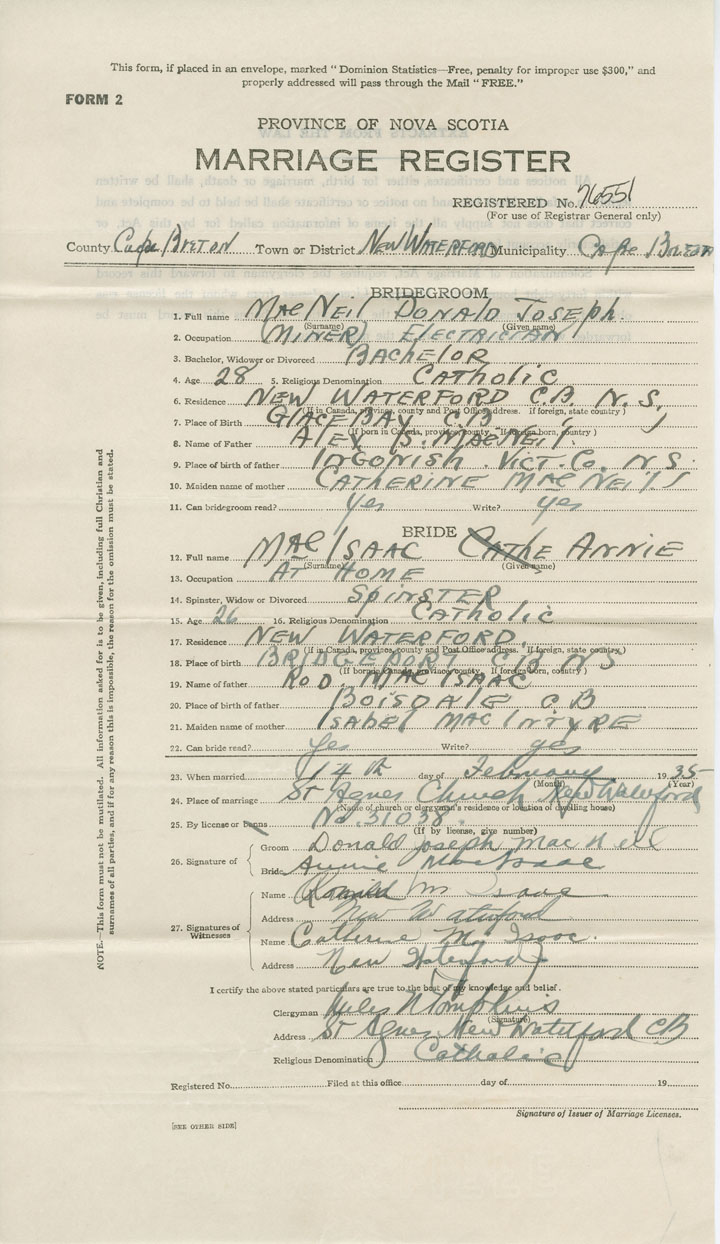 This form, if placed in an envelope, marked "Dominion Statistics—Free, penalty for improper use $300," and
properly addressed will pass through the Mail "FREE."
FORM 2
PROVINCE OF NOVA SCOTIA
MARRIAGE REGISTER
REGISTERED No. 76551
(For use of Registrar General only)
County Cape Breton Town or District New Waterford Municipality Cape Breton
BRIDEGROOM
1. Full name MacNeil Donald Joseph.
(Surname) (Given name)
2. Occupation (Miner) Electrician
3. Bachelor, Widower or Divorced Bachelor
4. Age 28 5. Religious Denomination Catholic
6. Residence New Waterford C.B. N.S.
(If in Canada, province, county and Post Office address. If foreign, state country)
7. Place of Birth Glace Bay C.B.
(If born in Canada, province, county. If foreign born, country)
8. Name of Father Alex S. MacNeil
9. Place of birth of father Ingonish. Vict. Co. N.S.
10. Maiden name of mother Catherine MacNeil
11. Can bridegroom read? Yes Write? yes
BRIDE
12. Full name MacIsaac Cathe Annie
(Surname) (Given name)
13. Occupation At Home
14. Spinster, Widow or Divorced Spinster
15. Age 26 16. Religious Denomination Catholic
17. Residence New Waterford.
(If in Canada, province, county and Post Office address. If foreign, state country.)
18. Place of birth Bridgeport C B N S
(If born in Canada, province, county. If foreign born, country)
19. Name of father Rod MacIsaac
20. Place of birth of father Boisdale C.B
21. Maiden name of mother Isabel MacIntyre
22. Can bride read? Yes Write? yes
23. When married 14th day of February 1935
(Month) (Year)
24. Place of marriage St Agnes Church New Waterford
(Name of church or clergyman's residence or location of dwelling house)
25. By license or banns No. 31038.
(If by license, give number)
26. Signature of
Groom Donald Joseph MacNeil
Bride Annie MacIsaac
27. Signatures of Witnesses
Name Ronald Mc Isaac
Address New Waterford
Name Catherine Mc Isaac.
Address New Waterford
I certify the above stated particulars are true to the best of my knowledge and belief.
Clergyman Miles N Tompkins
(Signature)
Address St Agnes New Waterford CB
Religious Denomination Catholic
Registered No. Filed at this office day of 19
Signature of Issuer of Marriage Licenses.
[SEE OTHER SIDE]
NOTE.—This form must not be mutilated. All information asked for is to be given, including full Christian and
surnames of all parties, and if for any reason this is impossible, the reason for the omission must be stated.